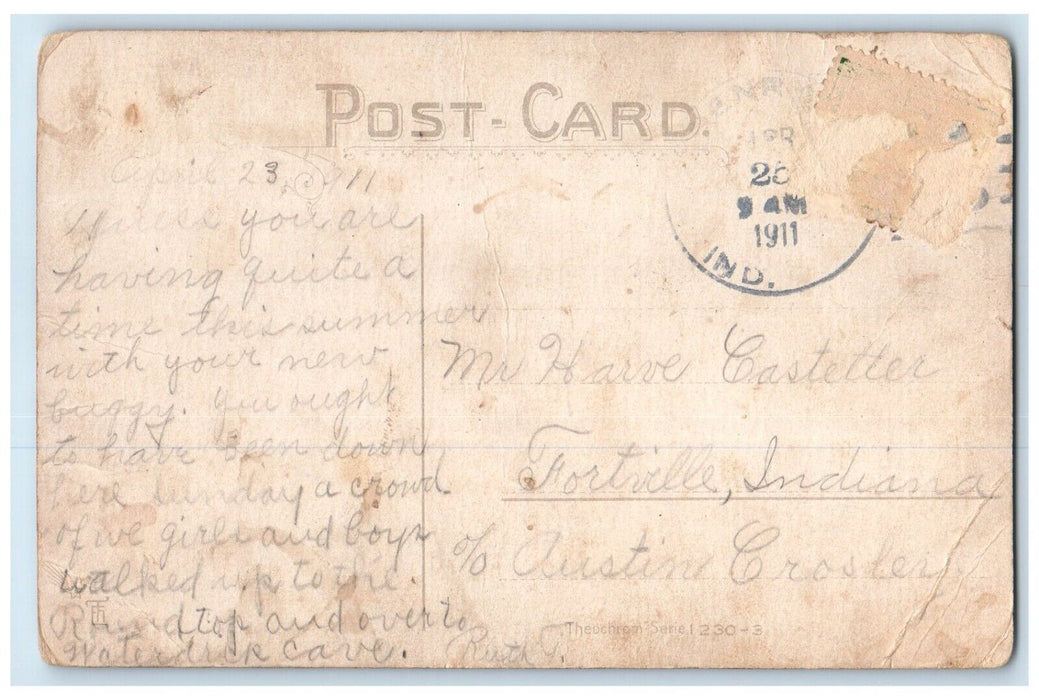 POST-CARD.
APR
25
9 AM
1911
IND.
April 23, 1911
you are
having quite a
time this summer
with your new
buggy. You ought
to have been down
here Sunday a crowd
of we girls and boys
walked up to the
Round top and over to
cave. Ruth
Mr Harve Castetter
Fortville, Indiana
c/o Austin Crosley
Theochrom Serie 1230-3